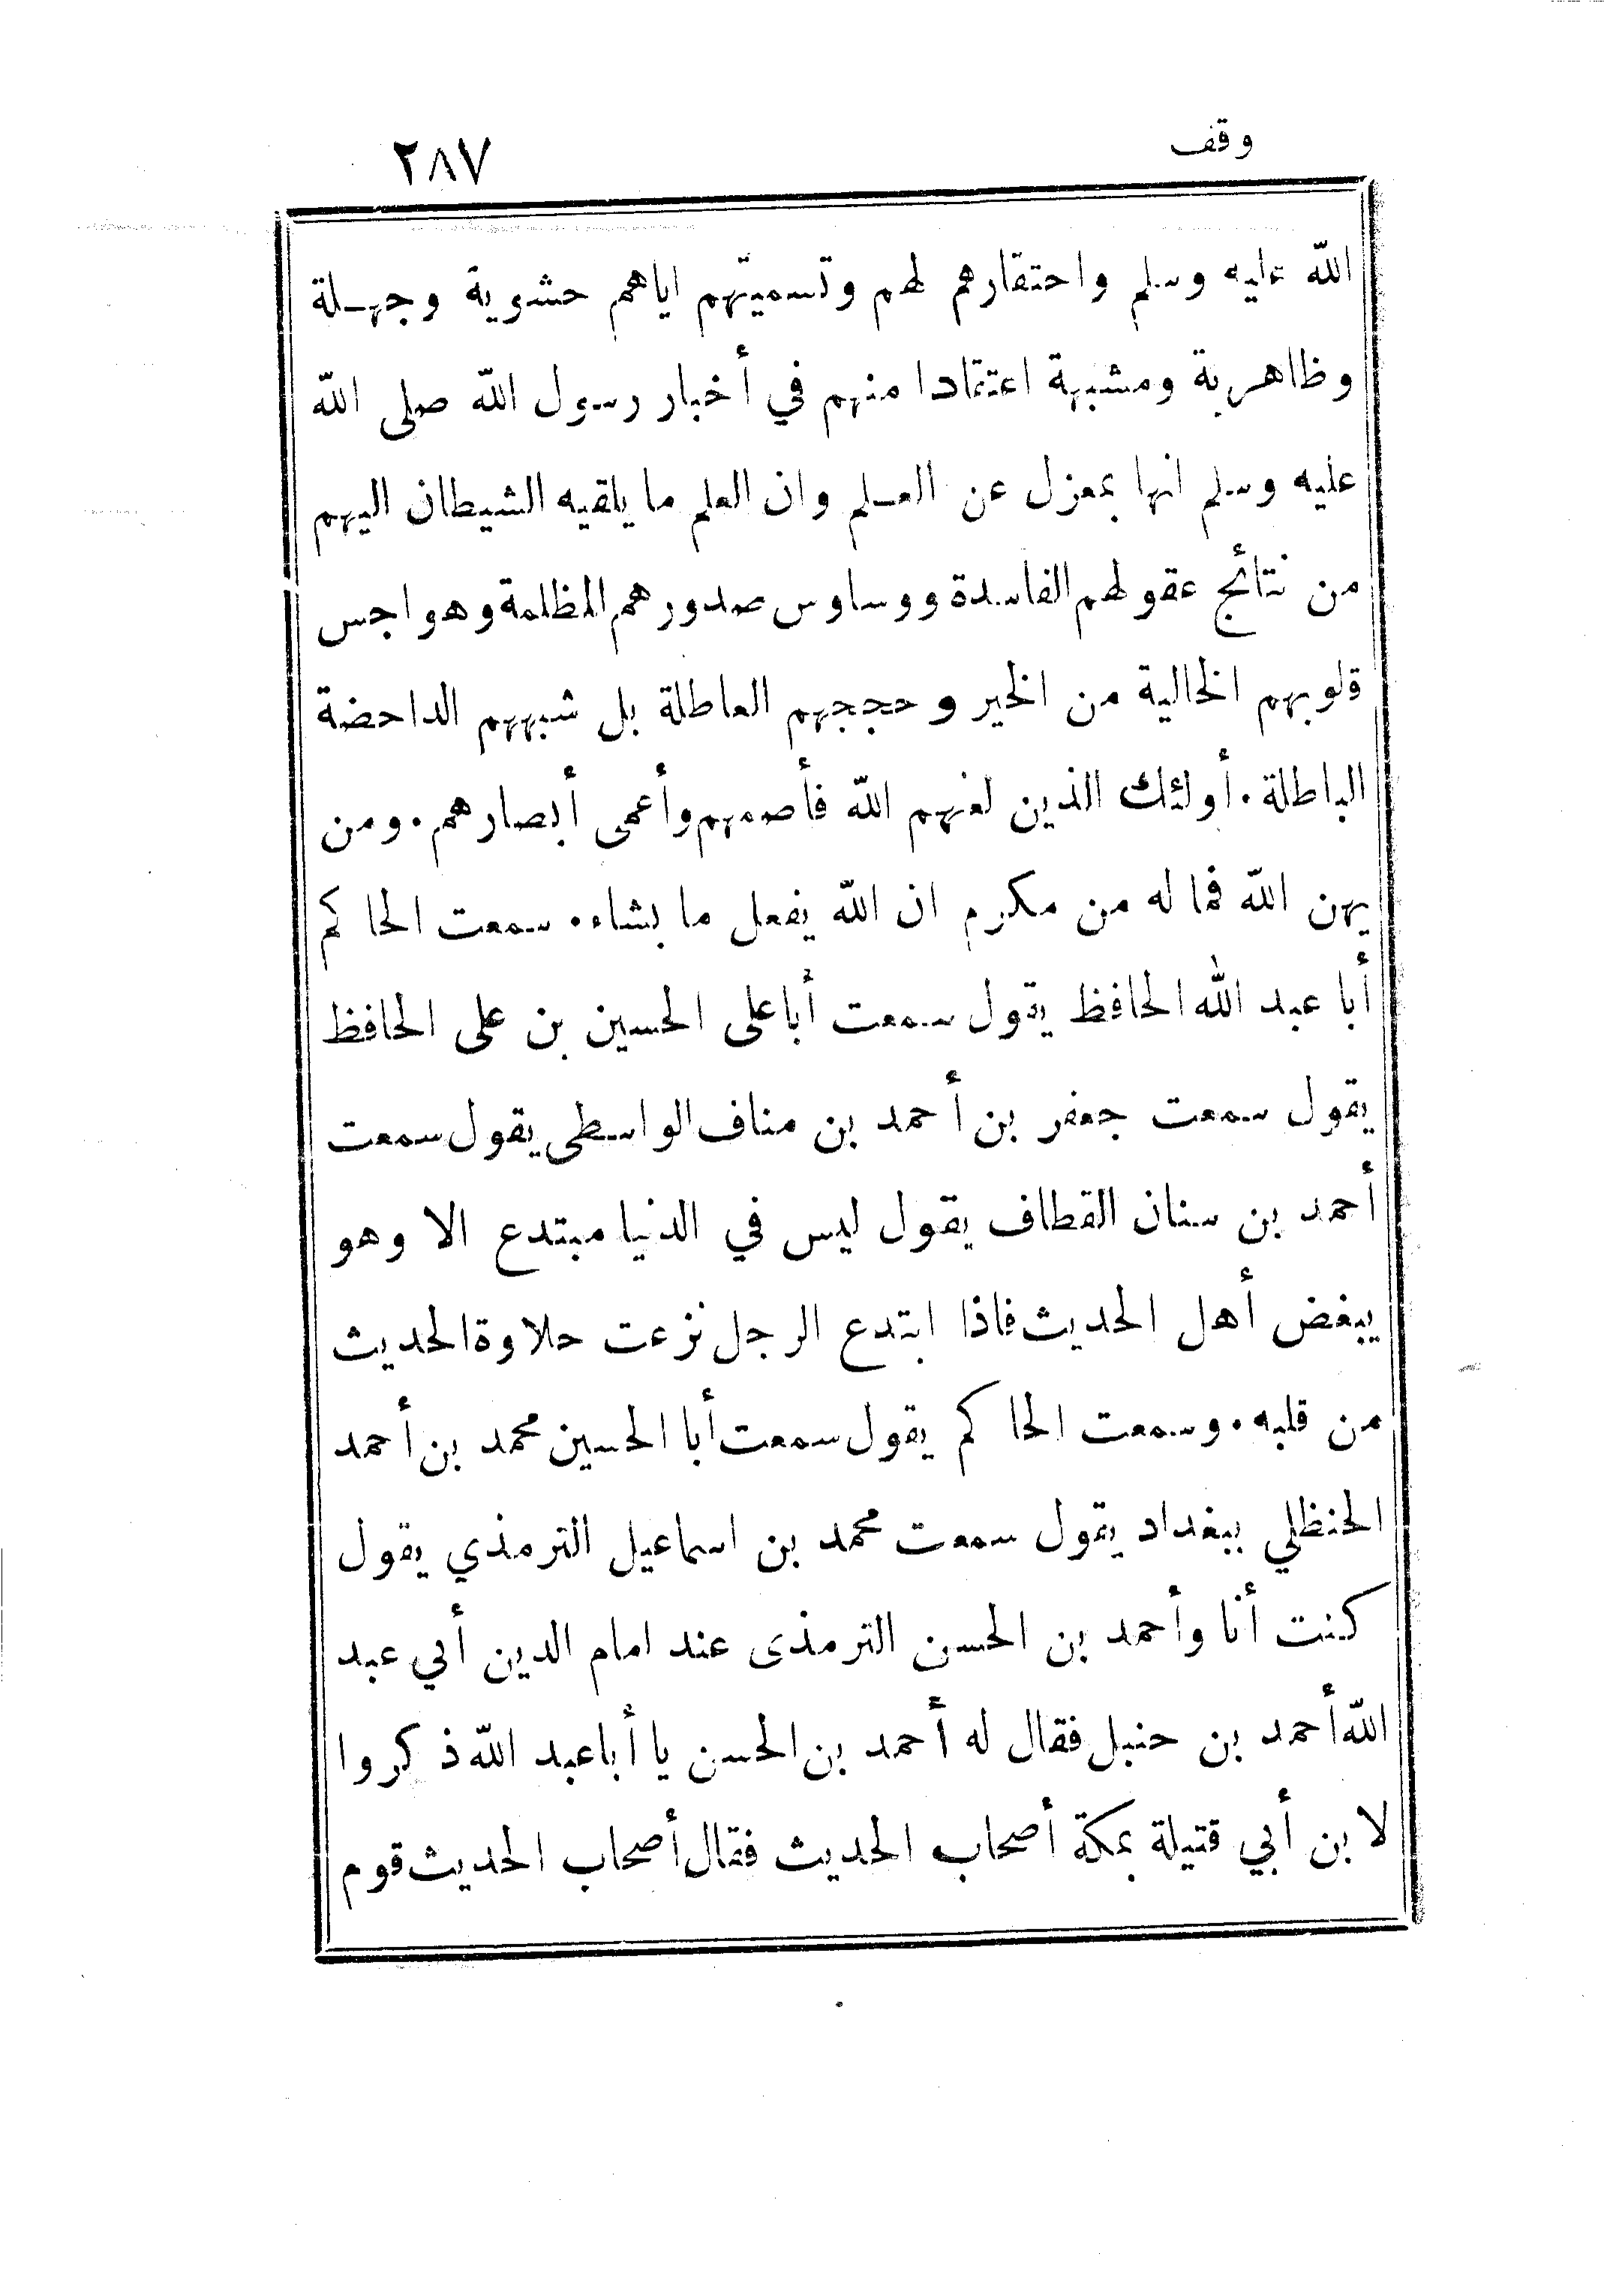 وقف
٢٨٧
الله عليه وسلم واحتقارهم لهم وتسميتهم اياهم حشوية وجهلة
وظاهرية ومشبهة اعتقادا منهم في أخبار رسول الله صلى الله
عليه وسلم انها بمعزل عن العلم وان العلم ما يلقيه الشيطان اليهم
من نتائج عقولهم الفاسدة ووساوس صدورهم المظلمة وهواجس
قلوبهم الخالية من الخير وحججهم العاطلة بل شبههم الداحضة
الباطلة. أولئك الذين لعنهم الله فأصمهم وأعمى أبصارهم. ومن
يهن الله فما له من مكرم ان الله يفعل ما يشاء. سمعت الحاكم
أبا عبد الله الحافظ يقول سمعت أبا على الحسين بن على الحافظ
يقول سمعت جعفر بن أحمد بن مناف الواسطى يقول سمعت
أحمد بن سنان القطاف يقول ليس في الدنيا مبتدع الا وهو
يبغض أهل الحديث فاذا ابتدع الرجل نزعت حلاوة الحديث
من قلبه. وسمعت الحاكم يقول سمعت أبا الحسين محمد بن أحمد
الحنظلي ببغداد يقول سمعت محمد بن اسماعيل الترمذي يقول
كنت أنا وأحمد بن الحسن الترمذى عند امام الدين أبي عبد
الله أحمد بن حنبل فقال له أحمد بن الحسن يا أبا عبد الله ذكروا
لابن أبي قتيلة بمكة أصحاب الحديث فقال أصحاب الحديث قوم